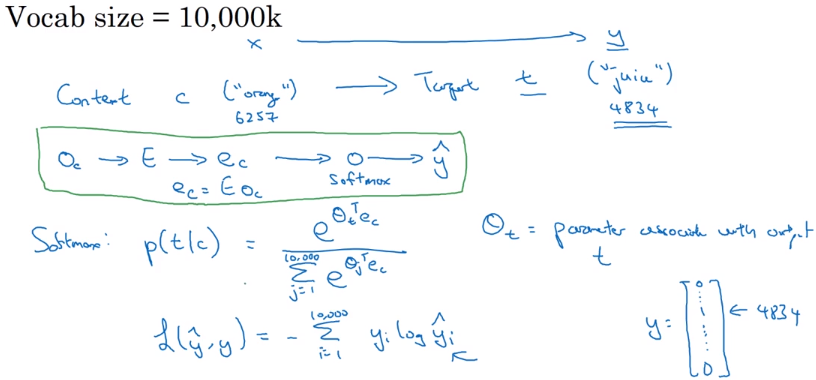 Vocab size = 10,000k
x ⟶ y
Context c ("orange") ⟶ Target t ("juice")
6257 4834
O_c → E → e_c ⟶ O ⟶ ŷ
e_c = E O_c softmax
Softmax: p(t|c) = e^{θ_t^T e_c} / Σ_{j=1}^{10,000} e^{θ_j^T e_c} θ_t = parameter associate with output t
ℒ(ŷ, y) = - Σ_{i=1}^{10,000} y_i log ŷ_i y = [0 ⋮ 1 ⋮ 0] ← 4834